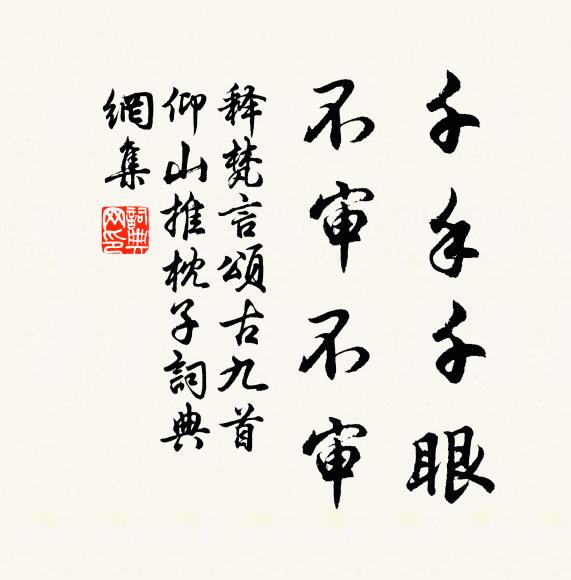 千手千眼
不审不审
释梵言颂古九首
仰山推枕子詞典
網集
詞典網印